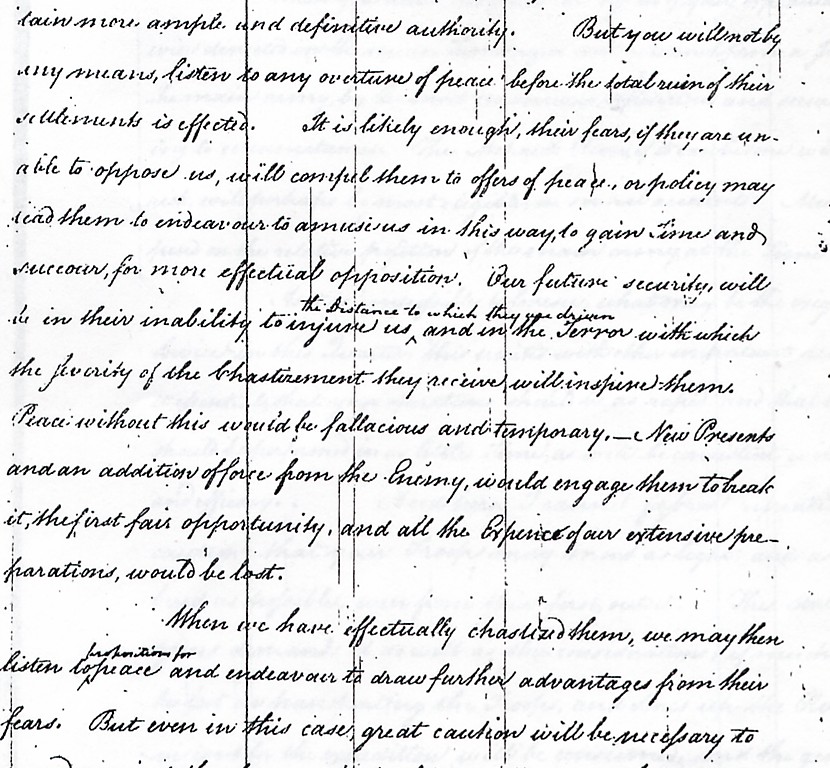 tain more ample and definitive authority. But you will not by
any means, listen to any overture of peace before the total ruin of their
settlements is effected. It is likely enough, their fears, if they are un-
able to oppose us, will compel them to offers of peace, or policy may
lead them to endeavour to amuse us in this way, to gain Time and
succour, for more effectual opposition. Our future security, will
be in their inability to injure us,
the Distance to which they are driven
and in the Terror with which
the severity of the Chastizement they receive will inspire them.
Peace without this would be fallacious and temporary.— New Presents
and an addition of force from the Enemy, would engage them to break
it, the first fair opportunity, and all the Expence of our extensive pre-
parations, would be lost.
When we have effectually chastized them, we may then
propositions for
listen to peace and endeavour to draw further advantages from their
fears. But even in this case, great caution will be necessary to